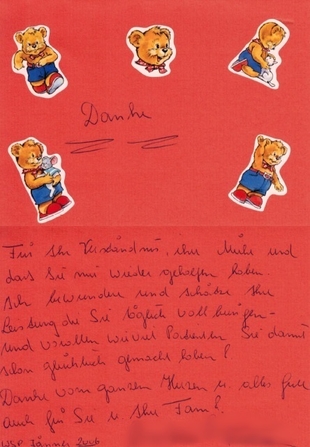 Danke
Für Ihr Verständnis, ihre Mühe und
dass Sie mir wieder geholfen haben.
Ich bewundere und schätze Ihre
Leistung die Sie täglich vollbringen -
und vorallem wieviel Patienten Sie damit
schon glücklich gemacht haben!
Danke vom ganzen Herzen u. alles Gute
auch für Sie u. Ihre Fam.!
Jänner 2006